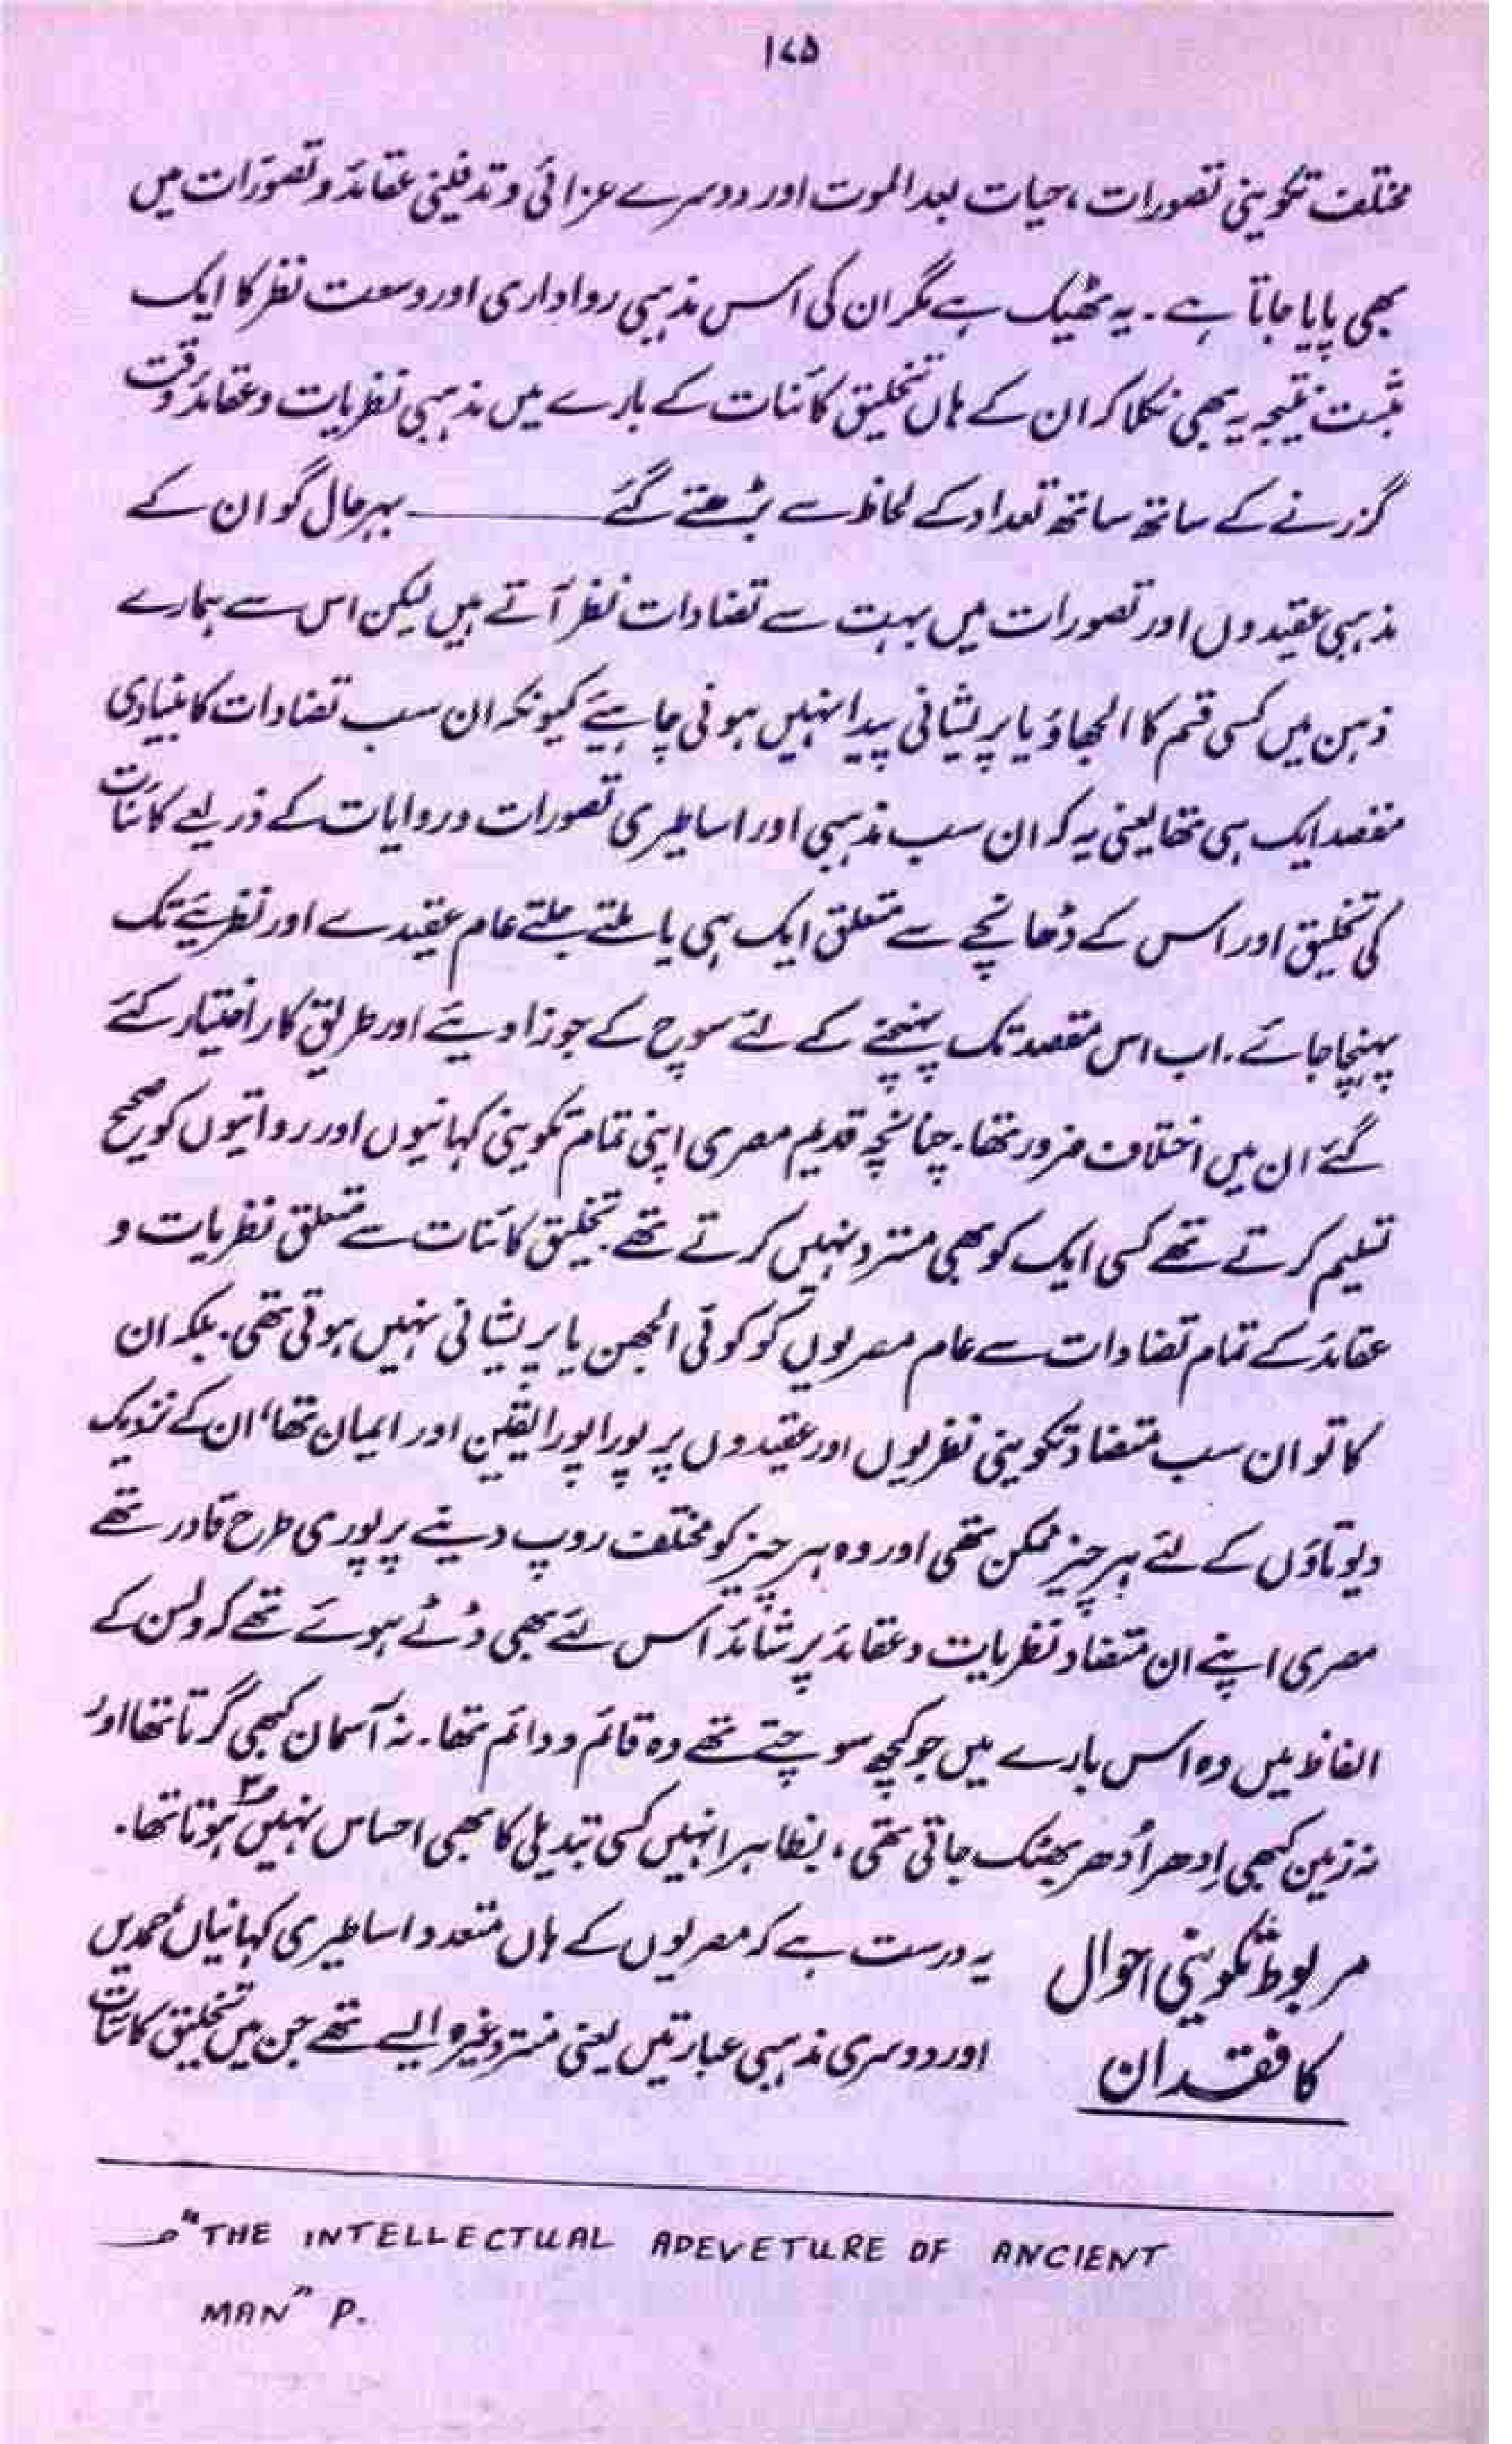 ۱۷۵
مختلف تکوینی تصورات، حیات بعد الموت اور دوسرے عزائی و تدفینی عقائد و تصوّرات میں
بھی پایا جاتا ہے۔ یہ ٹھیک ہے مگر ان کی اس مذہبی رواداری اور وسعت نظر کا ایک
مثبت نتیجہ یہ بھی نکلا کہ ان کے ہاں تخلیق کائنات کے بارے میں مذہبی نظریات و عقائد وقت
گزرنے کے ساتھ ساتھ تعداد کے لحاظ سے بڑھتے گئے ——— بہرحال گو ان کے
مذہبی عقیدوں اور تصورات میں بہت سے تضادات نظر آتے ہیں لیکن اس سے ہمارے
ذہن میں کسی قسم کا الجھاؤ یا پریشانی پیدا نہیں ہونی چاہیئے کیونکہ ان سب تضادات کا بنیادی
مقصد ایک ہی تھا یعنی یہ کہ ان سب مذہبی اور اساطیری تصورات و روایات کے ذریعے کائنات
کی تخلیق اور اس کے ڈھانچے سے متعلق ایک ہی یا ملتے جلتے عام عقیدے اور نظریئے تک
پہنچا جائے۔ اب اس مقصد تک پہنچنے کے لئے سوچ کے جو زاویئے اور طریق کار اختیار کئے
گئے ان میں اختلاف ضرور تھا۔ چنانچہ قدیم مصری اپنی تمام تکوینی کہانیوں اور روایتوں کو صحیح
تسلیم کرتے تھے کسی ایک کو بھی مسترد نہیں کرتے تھے۔ تخلیق کائنات سے متعلق نظریات و
عقائد کے تمام تضادات سے عام مصریوں کو کوئی الجھن یا پریشانی نہیں ہوتی تھی۔ بلکہ ان
کا تو ان سب متضاد تکوینی نظریوں اور عقیدوں پر پورا پورا یقین اور ایمان تھا، ان کے نزدیک
دیوتاؤں کے لئے ہر چیز ممکن تھی اور وہ ہر چیز کو مختلف روپ دینے پر پوری طرح قادر تھے
مصری اپنے ان متضاد نظریات و عقائد پر شائد اس لئے بھی ڈٹے ہوئے تھے کہ ولسن کے
الفاظ میں وہ اس بارے میں جو کچھ سوچتے تھے وہ قائم و دائم تھا۔ نہ آسمان کبھی گرتا تھا اور
نہ زمین کبھی اِدھر اُدھر بھٹک جاتی تھی، بظاہر انہیں کسی تبدیلی کا بھی احساس نہیں ہوتا تھا۔
مربوط تکوینی احوال
کا فقدان
یہ درست ہے کہ مصریوں کے ہاں متعدد اساطیری کہانیاں، حمدیں
اور دوسری مذہبی عبارتیں یعنی منتر وغیرہ ایسے تھے جن میں تخلیق کائنات
"THE INTELLECTUAL ADEVETURE OF ANCIENT
MAN" P.